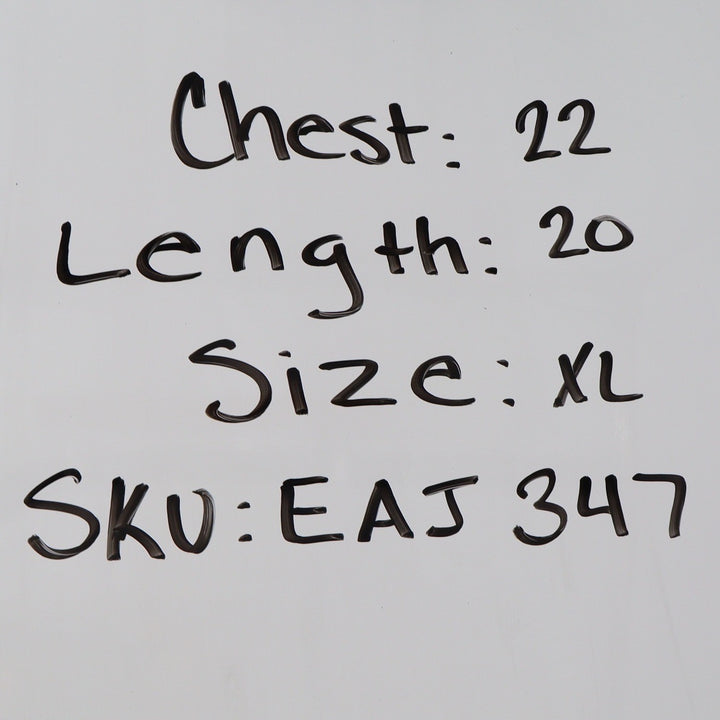 Chest: 22
Length: 20
Size: XL
SKU: EAJ 347